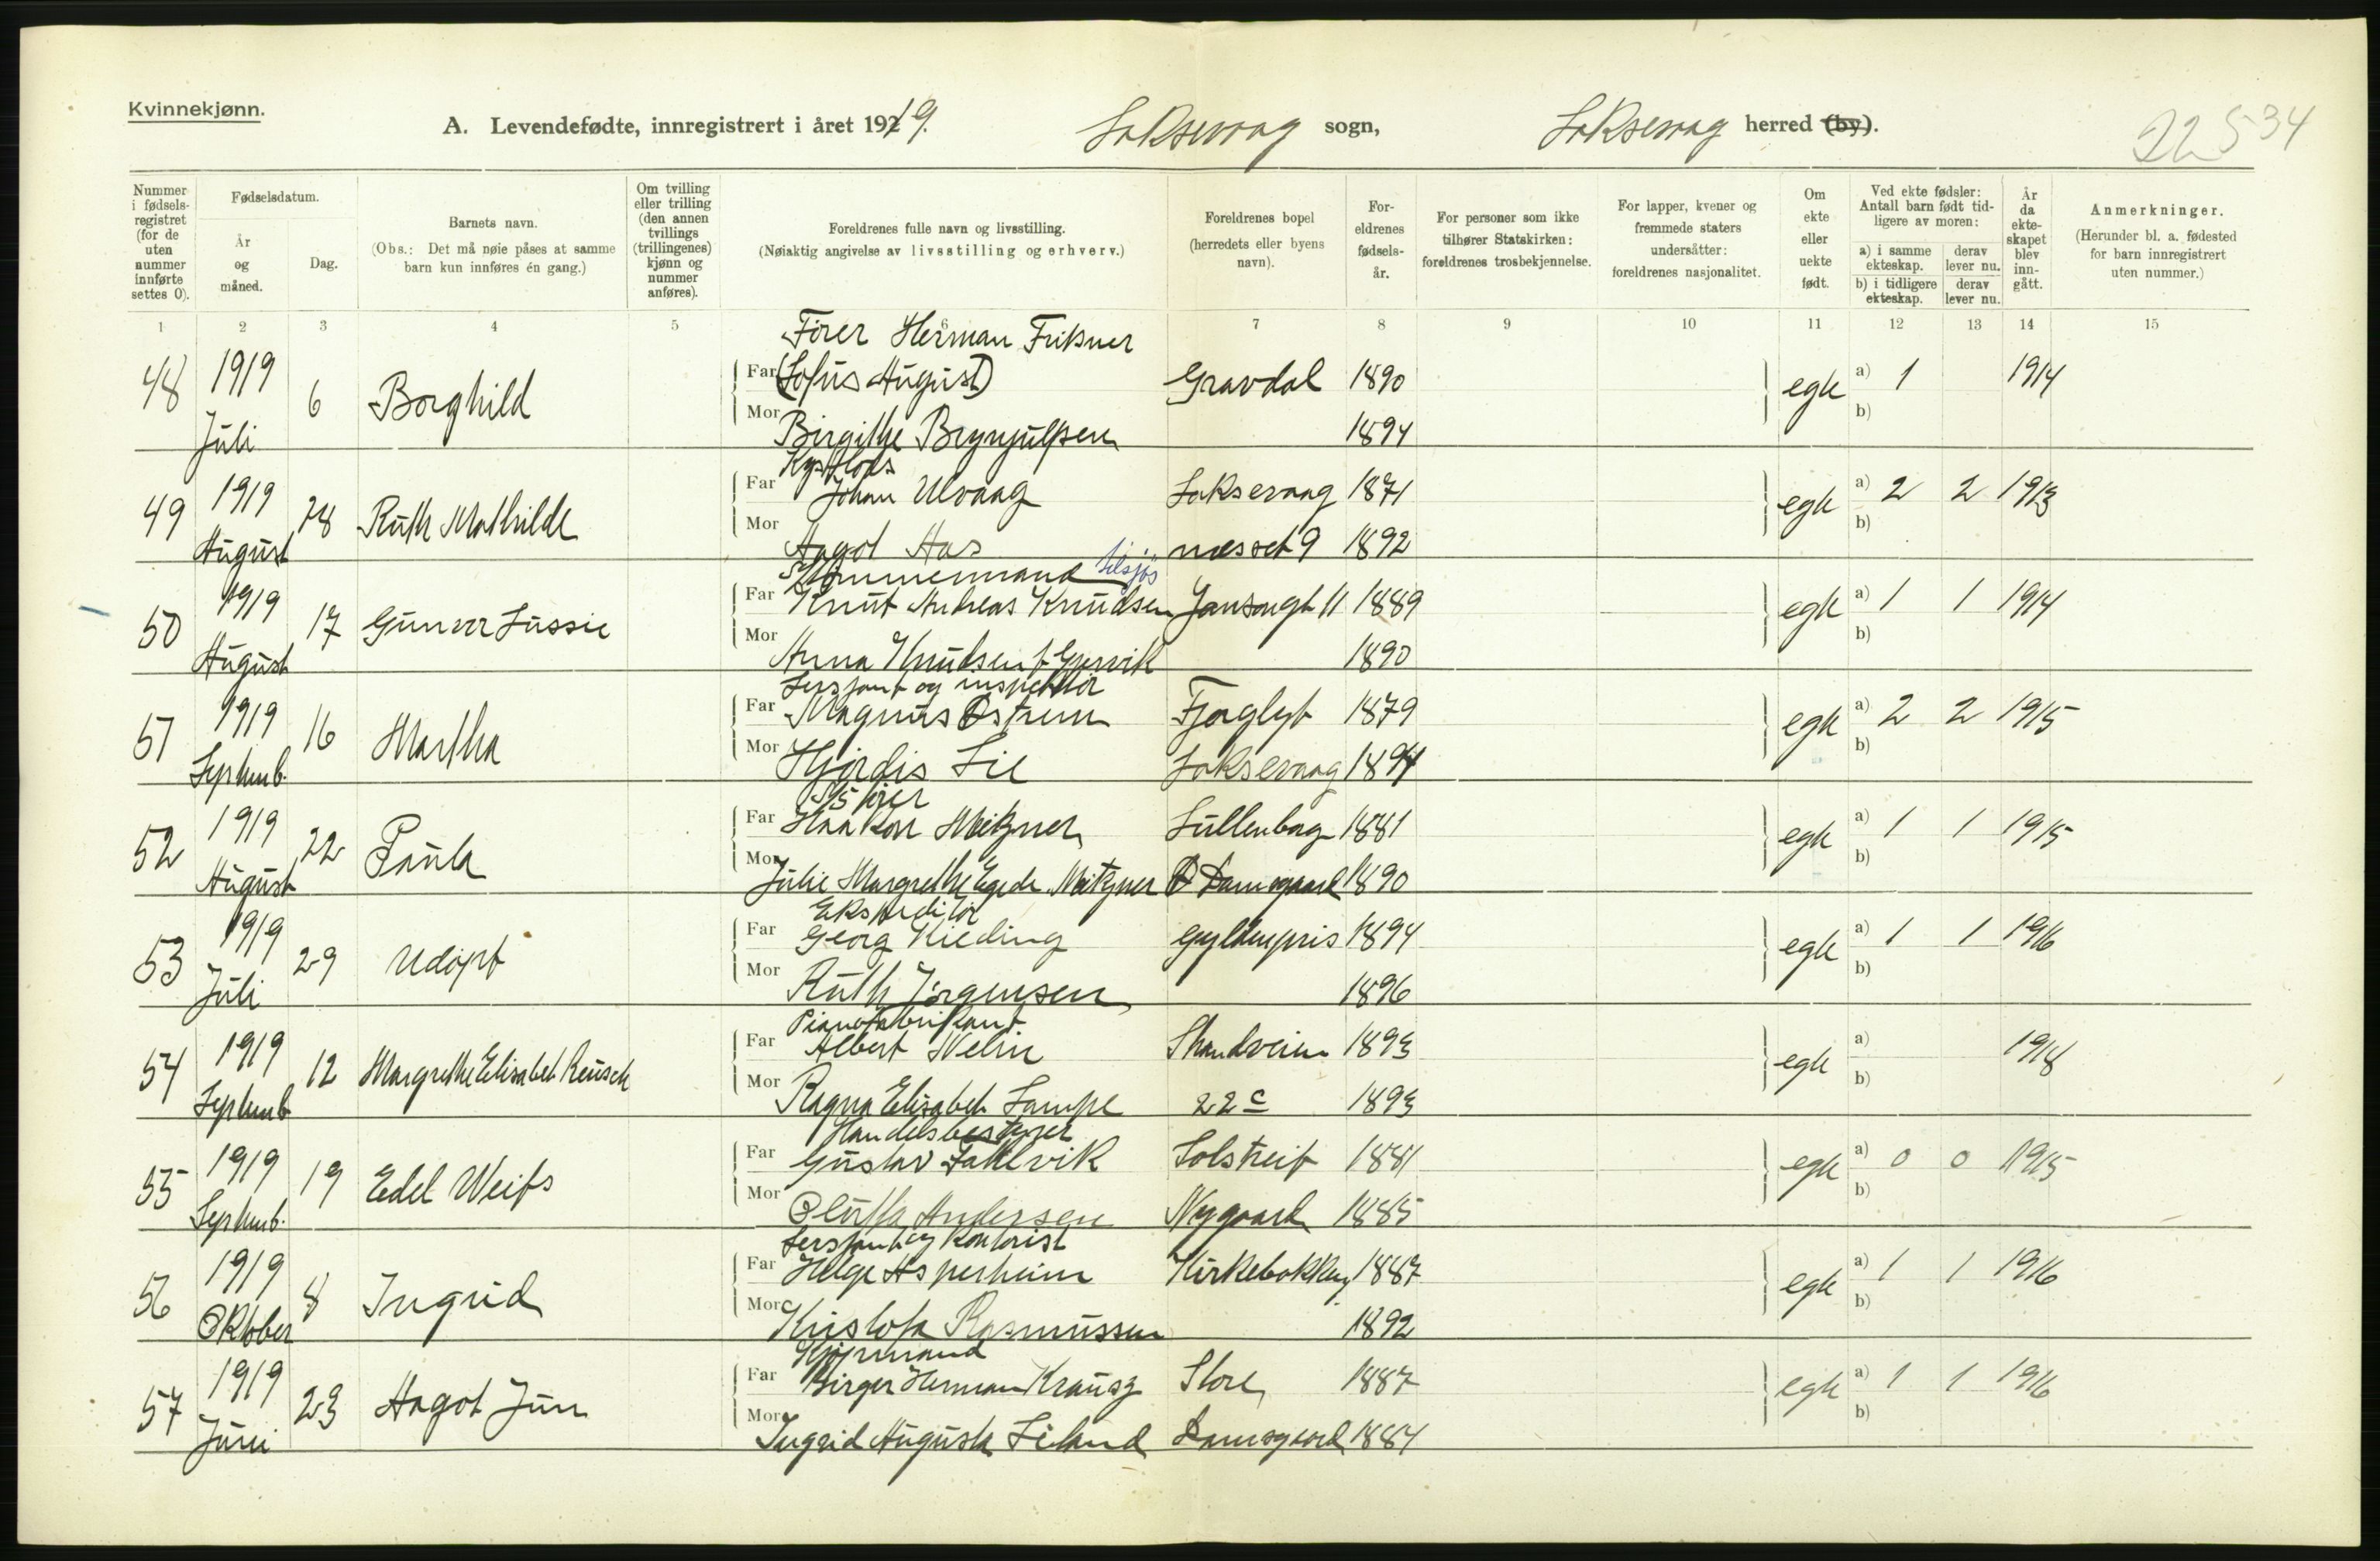 Kvinnekjønn.
A. Levendefødte, innregistrert i året 1919. Laksevaag sogn, Laksevaag herred (by).
22534
Nummer i fødsels-registret (for de uten nummer innførte settes 0).
Fødselsdatum.
År og måned.
Dag.
Barnets navn.
(Obs.: Det må nøie påses at samme barn kun innføres én gang.)
Om tvilling eller trilling (den annen tvillings (trillingenes) kjønn og nummer anføres).
Foreldrenes fulle navn og livsstilling.
(Nøiaktig angivelse av livsstilling og erhverv.)
Foreldrenes bopel (herredets eller byens navn).
For-eldrenes fødsels-år.
For personer som ikke tilhører Statskirken: foreldrenes trosbekjennelse.
For lapper, kvener og fremmede staters undersåtter: foreldrenes nasjonalitet.
Om ekte eller uekte født.
Ved ekte fødsler: Antall barn født tid-ligere av moren:
a) i samme ekteskap.
derav lever nu.
b) i tidligere ekteskap.
derav lever nu.
År da ekte-skapet blev inn-gått.
Anmerkninger.
(Herunder bl. a. fødested for barn innregistrert uten nummer.)
1 2 3 4 5 6 7 8 9 10 11 12 13 14 15
Fører Herman Friksner
48 1919 Juli 6 Borghild Far (Lofus August) Gravdal 1890 egte a) 1 1914
Mor Birgithe Brynjulfsen 1894 b)
Kystlods
49 1919 August 28 Ruth Mathilde Far Johan Ulvaag Laksevaag 1871 egte a) 2 2 1913
Mor Aagot Aas næsset 9 1892 b)
Tømmermand tilsjøs
50 1919 August 17 Gunvor Lussie Far Knut Andreas Knudsen Jansongt 11 1889 egte a) 1 1 1914
Mor Anna Knudsen f. Gjervik 1890 b)
Sersjant og inspektør
51 1919 Septemb. 16 Martha Far Magnus Østrem Fjøglyt 1879 egte a) 2 2 1915
Mor Hjørdis Lie Laksevaag 1894 b)
52 1919 August 22 Paula Far Haakon Meitzner Lullenborg 1881 egte a) 1 1 1915
Mor Julie Margrethe Egede Meitzner Damsgaard 1890 b)
Ekspeditør
53 1919 Juli 29 Udøpt Far Georg Kieding Gyldenpris 1894 egte a) 1 1 1916
Mor Ruth Jørgensen 1896 b)
Pianofabrikant
54 1919 Septemb 12 Margrethe Elisabet Reusch Far Albert Welin Strandveien 1893 egte a) 1918
Mor Ragna Elisabeth Lampe 22 c 1893 b)
Handelsbestyrer
55 1919 Septemb. 19 Edel Weiss Far Gustav Dahlvik Solstreif 1881 egte a) 0 0 1915
Mor Oluffa Andersen Nygaard 1885 b)
Sersjant og Kontorist
56 1919 Oktober 8 Ingrid Far Helge Asperheim Kirkebakken 1887 egte a) 1 1 1916
Mor Kristofa Rasmussen 1892 b)
Kjøpmand
57 1919 Juni 23 Aagot Jun Far Birger Herman Krausz Store 1887 egte a) 1 1 1916
Mor Ingrid Augusta Leland Damsgaard 1884 b)